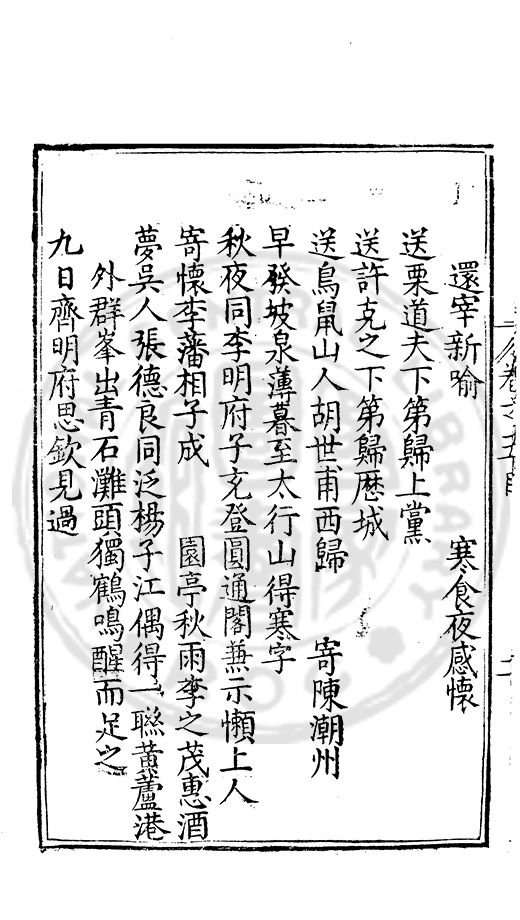 還宰新喻　寒食夜感懷
送栗道夫下第歸上黨
送許克之下第歸歷城
送鳥鼠山人胡世甫西歸　寄陳潮州
早發坡泉薄暮至太行山得寒字
秋夜同李明府子充登圓通閣兼示懶上人
寄懷李藩相子成　園亭秋雨李之茂惠酒
夢吳人張德良同泛楊子江偶得一聯黃蘆港
外群峯出青石灘頭獨鶴鳴醒而足之
九日齊明府思欽見過